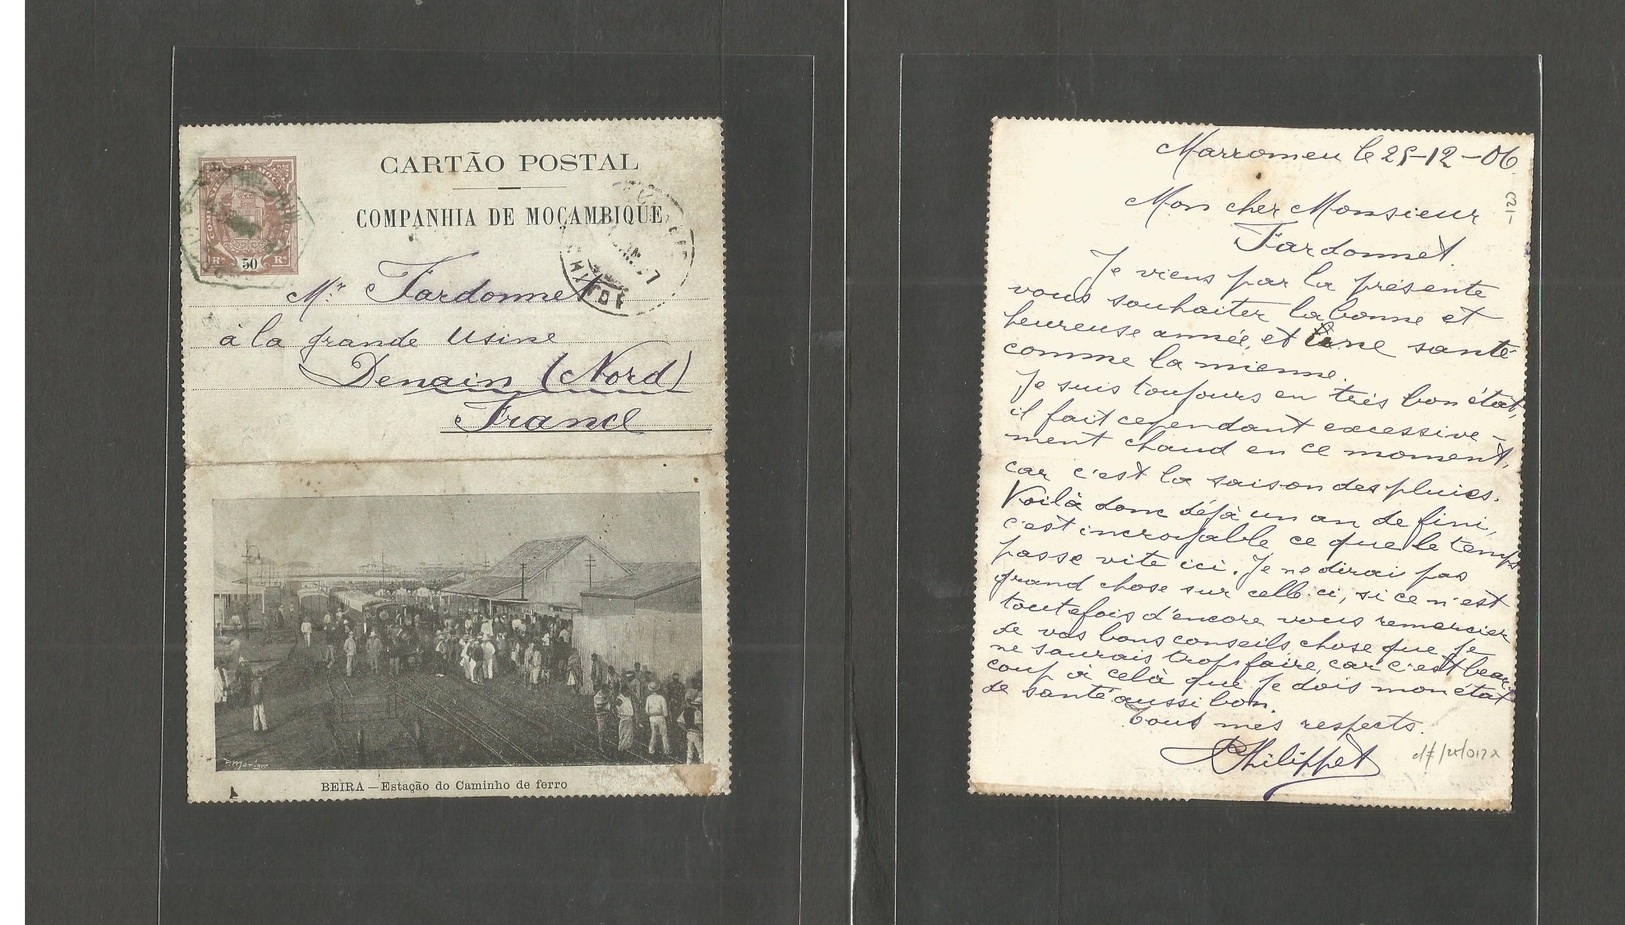 CARTÃO POSTAL
COMPANHIA DE MOÇAMBIQUE
50
Mr Fardonnet
à la grande Usine
Denain (Nord)
France
BEIRA — Estação do Caminho de ferro
Marromeu le 25-12-06
Mon cher Monsieur
Fardonnet.
Je viens par la présente
vous souhaiter la bonne et
heureuse année, et une santé
comme la mienne.
Je suis toujours en très bon état,
il fait cependant excessive-
ment chaud en ce moment,
car c'est la saison des pluies.
Voilà donc déjà un an de fini,
c'est incroyable ce que le temps
passe vite ici. Je ne dirai pas
grand chose sur celle-ci, si ce n'est
toutefois d'encore vous remercier
de vos bons conseils chose que je
ne saurais trop faire, car c'est beau-
coup à celà que je dois mon état
de santé aussi bon.
Tous mes respects.
Philippet